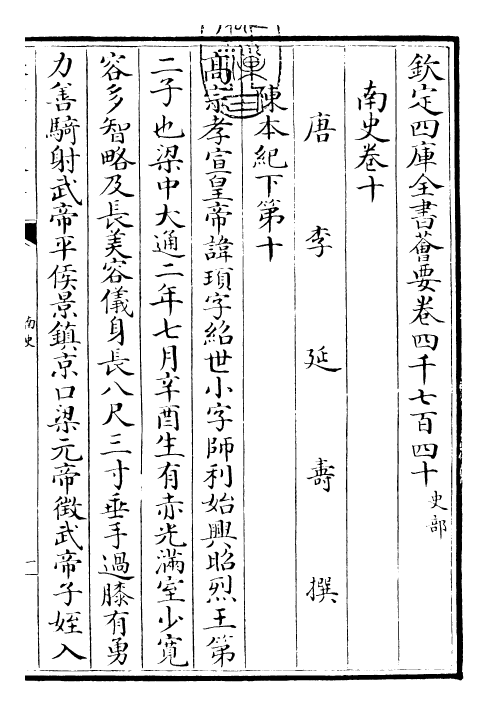 欽定四庫全書薈要卷四千七百四十 史部
南史卷十
唐 李 延 壽 撰
陳本紀下第十
高宗孝宣皇帝諱頊字紹世小字師利始興昭烈王第
二子也梁中大通二年七月辛酉生有赤光滿室少寛
容多智略及長美容儀身長八尺三寸垂手過膝有勇
力善騎射武帝平侯景鎮京口梁元帝徵武帝子姪入
南史
一